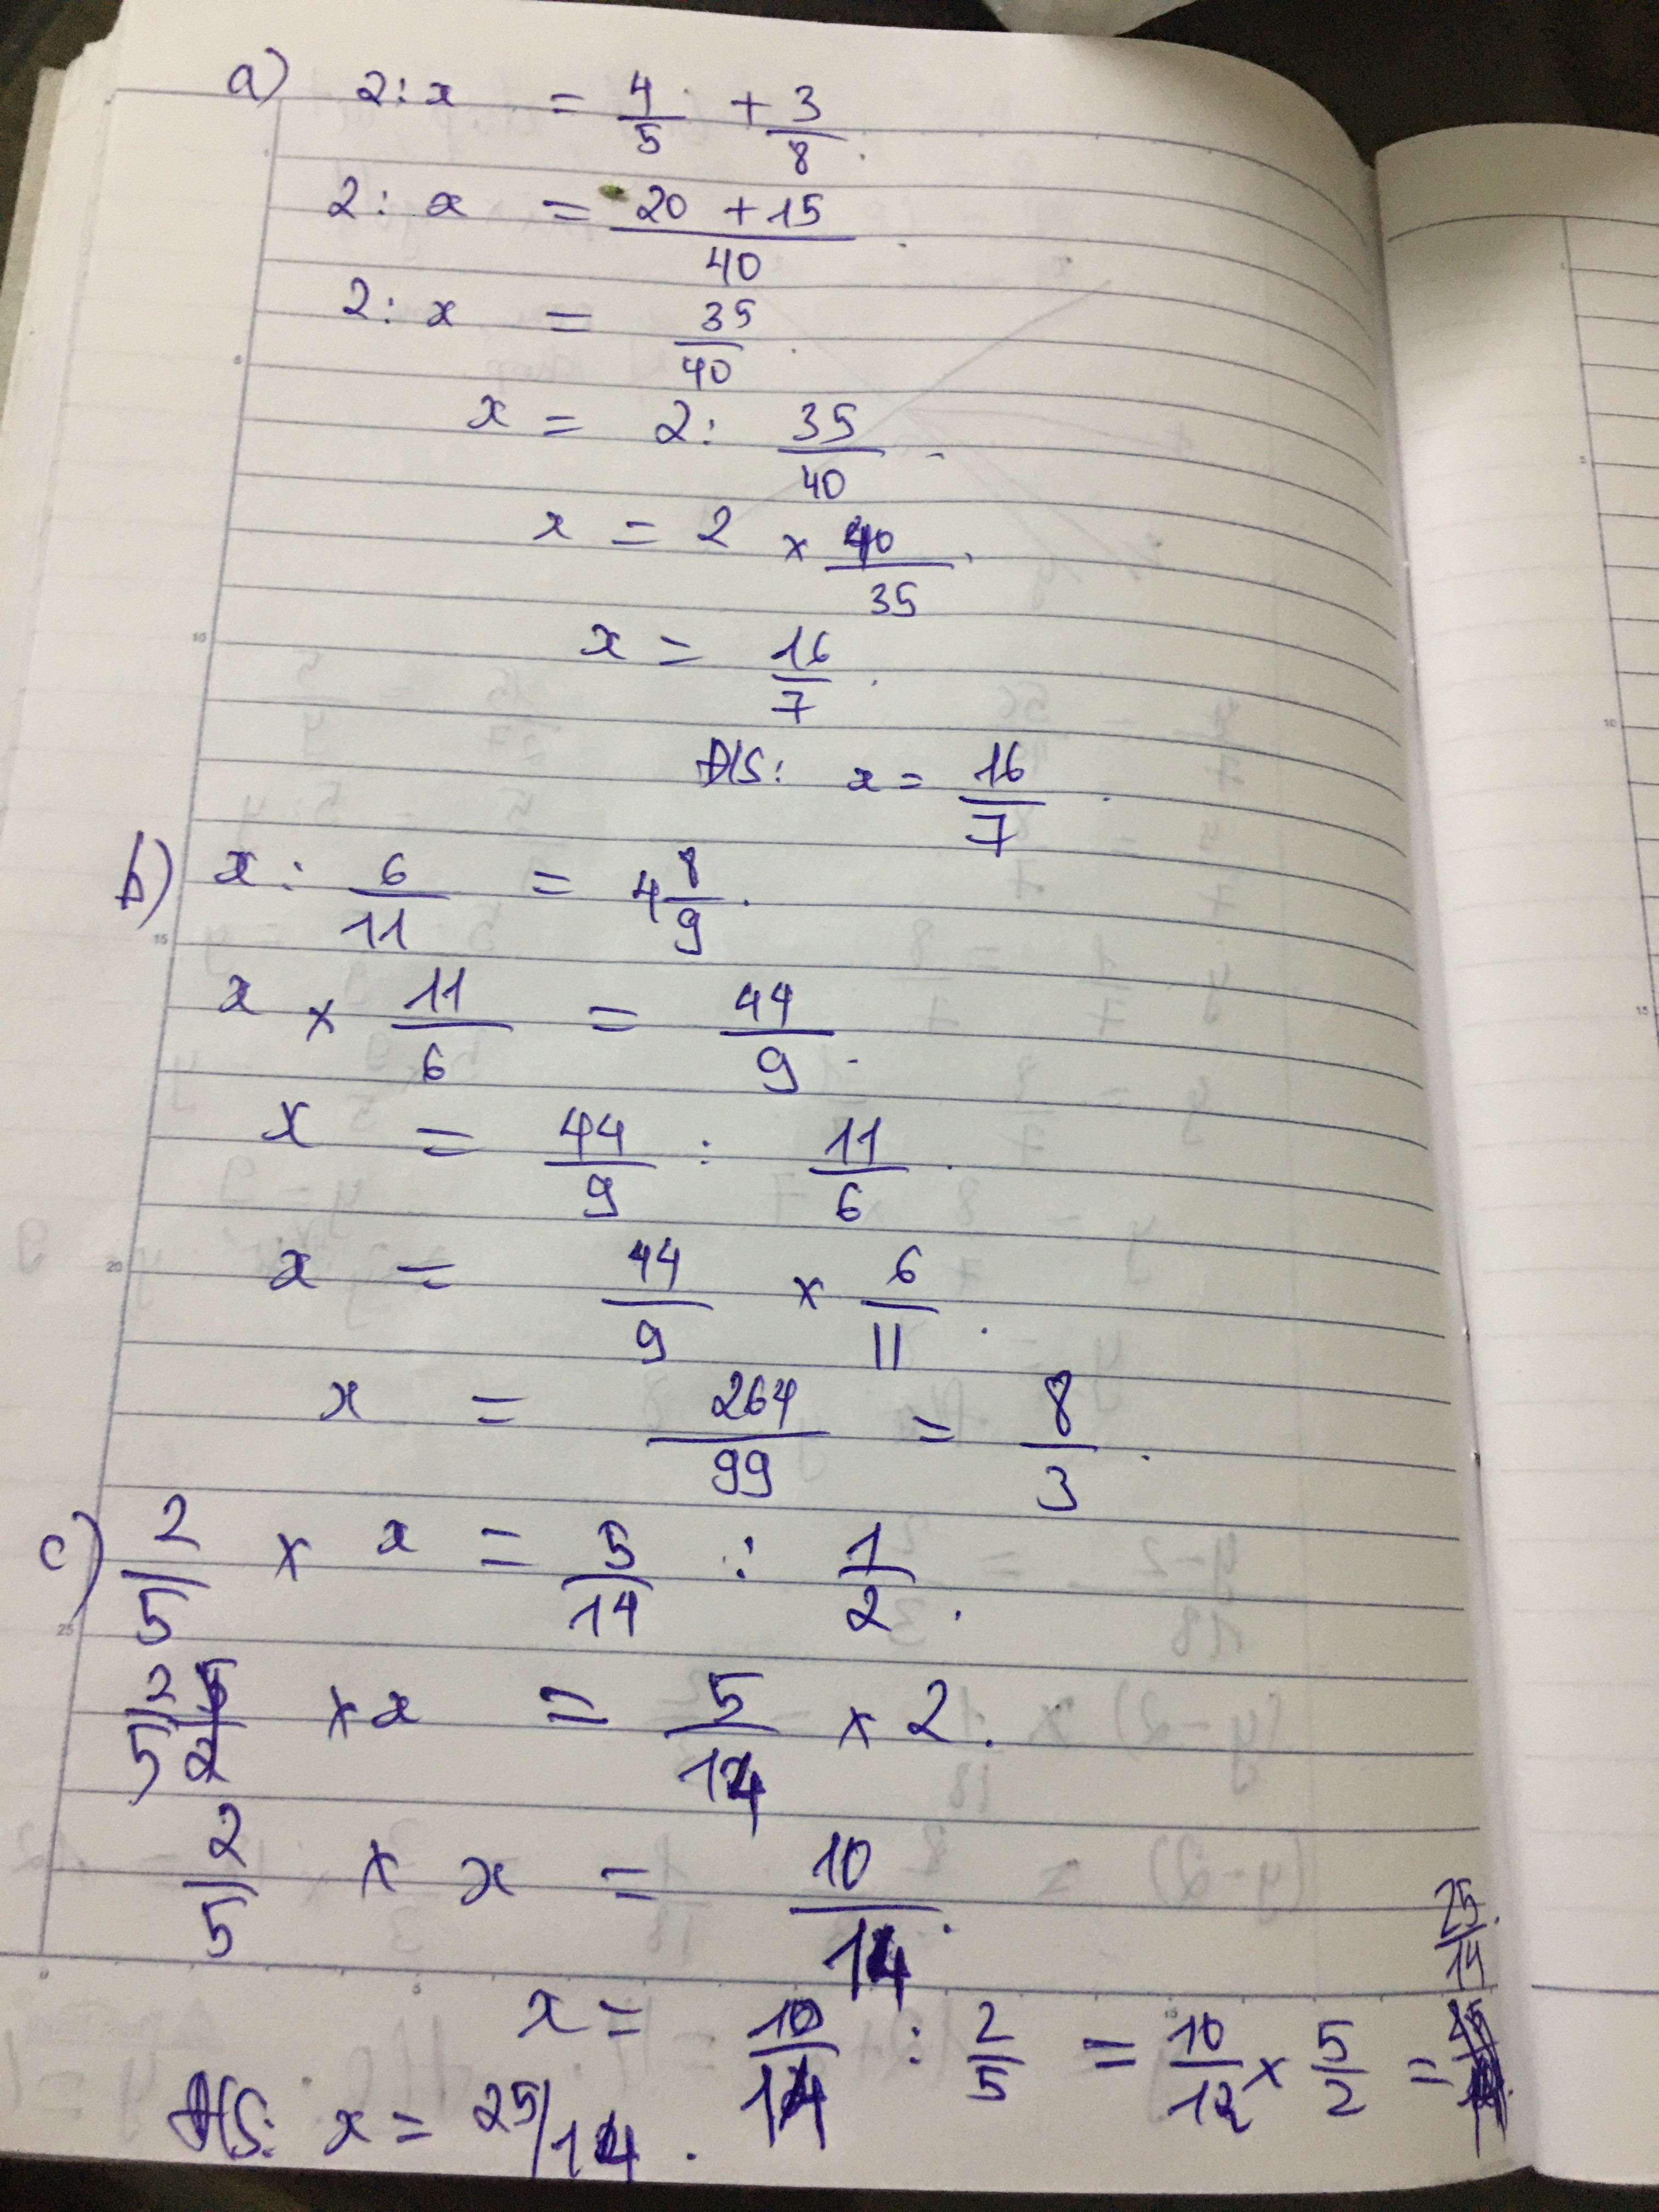 a) 2 : x = 4/5 + 3/8.
2 : x = (20 + 15)/40.
2 : x = 35/40.
x = 2 : 35/40.
x = 2 × 40/35.
x = 16/7.
Đ/S: x = 16/7.
b) x : 6/11 = 4 8/9.
x × 11/6 = 44/9.
x = 44/9 : 11/6.
x = 44/9 × 6/11.
x = 264/99 = 8/3.
c) 2/5 × x = 5/14 : 1/2.
2/5 × x = 5/14 × 2.
2/5 × x = 10/14.
x = 10/14 : 2/5 = 10/12 × 5/2 = 25/14.
Đ/S: x = 25/14.